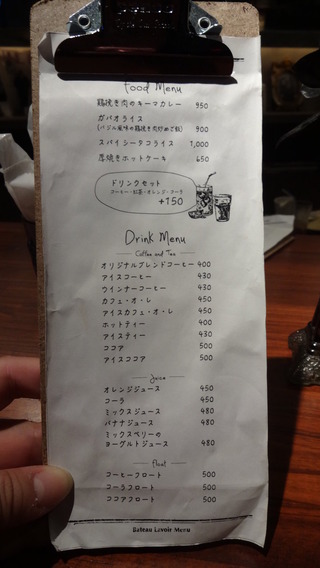 Food Menu
鶏挽き肉のキーマカレー 950
ガパオライス
(バジル風味の鶏挽き肉炒めご飯) 900
スパイシータコライス 1,000
厚焼きホットケーキ 650
ドリンクセット
コーヒー・紅茶・オレンジ・コーラ
+150
Drink Menu
Coffee and Tea
オリジナルブレンドコーヒー 400
アイスコーヒー 430
ウインナーコーヒー 430
カフェ・オ・レ 450
アイスカフェ・オ・レ 450
ホットティー 400
アイスティー 430
ココア 500
アイスココア 500
Juice
オレンジジュース 450
コーラ 450
ミックスジュース 480
バナナジュース 480
ミックスベリーの
ヨーグルトジュース 480
float
コーヒーフロート 500
コーラフロート 500
ココアフロート 500
Bateau Lavoir Menu